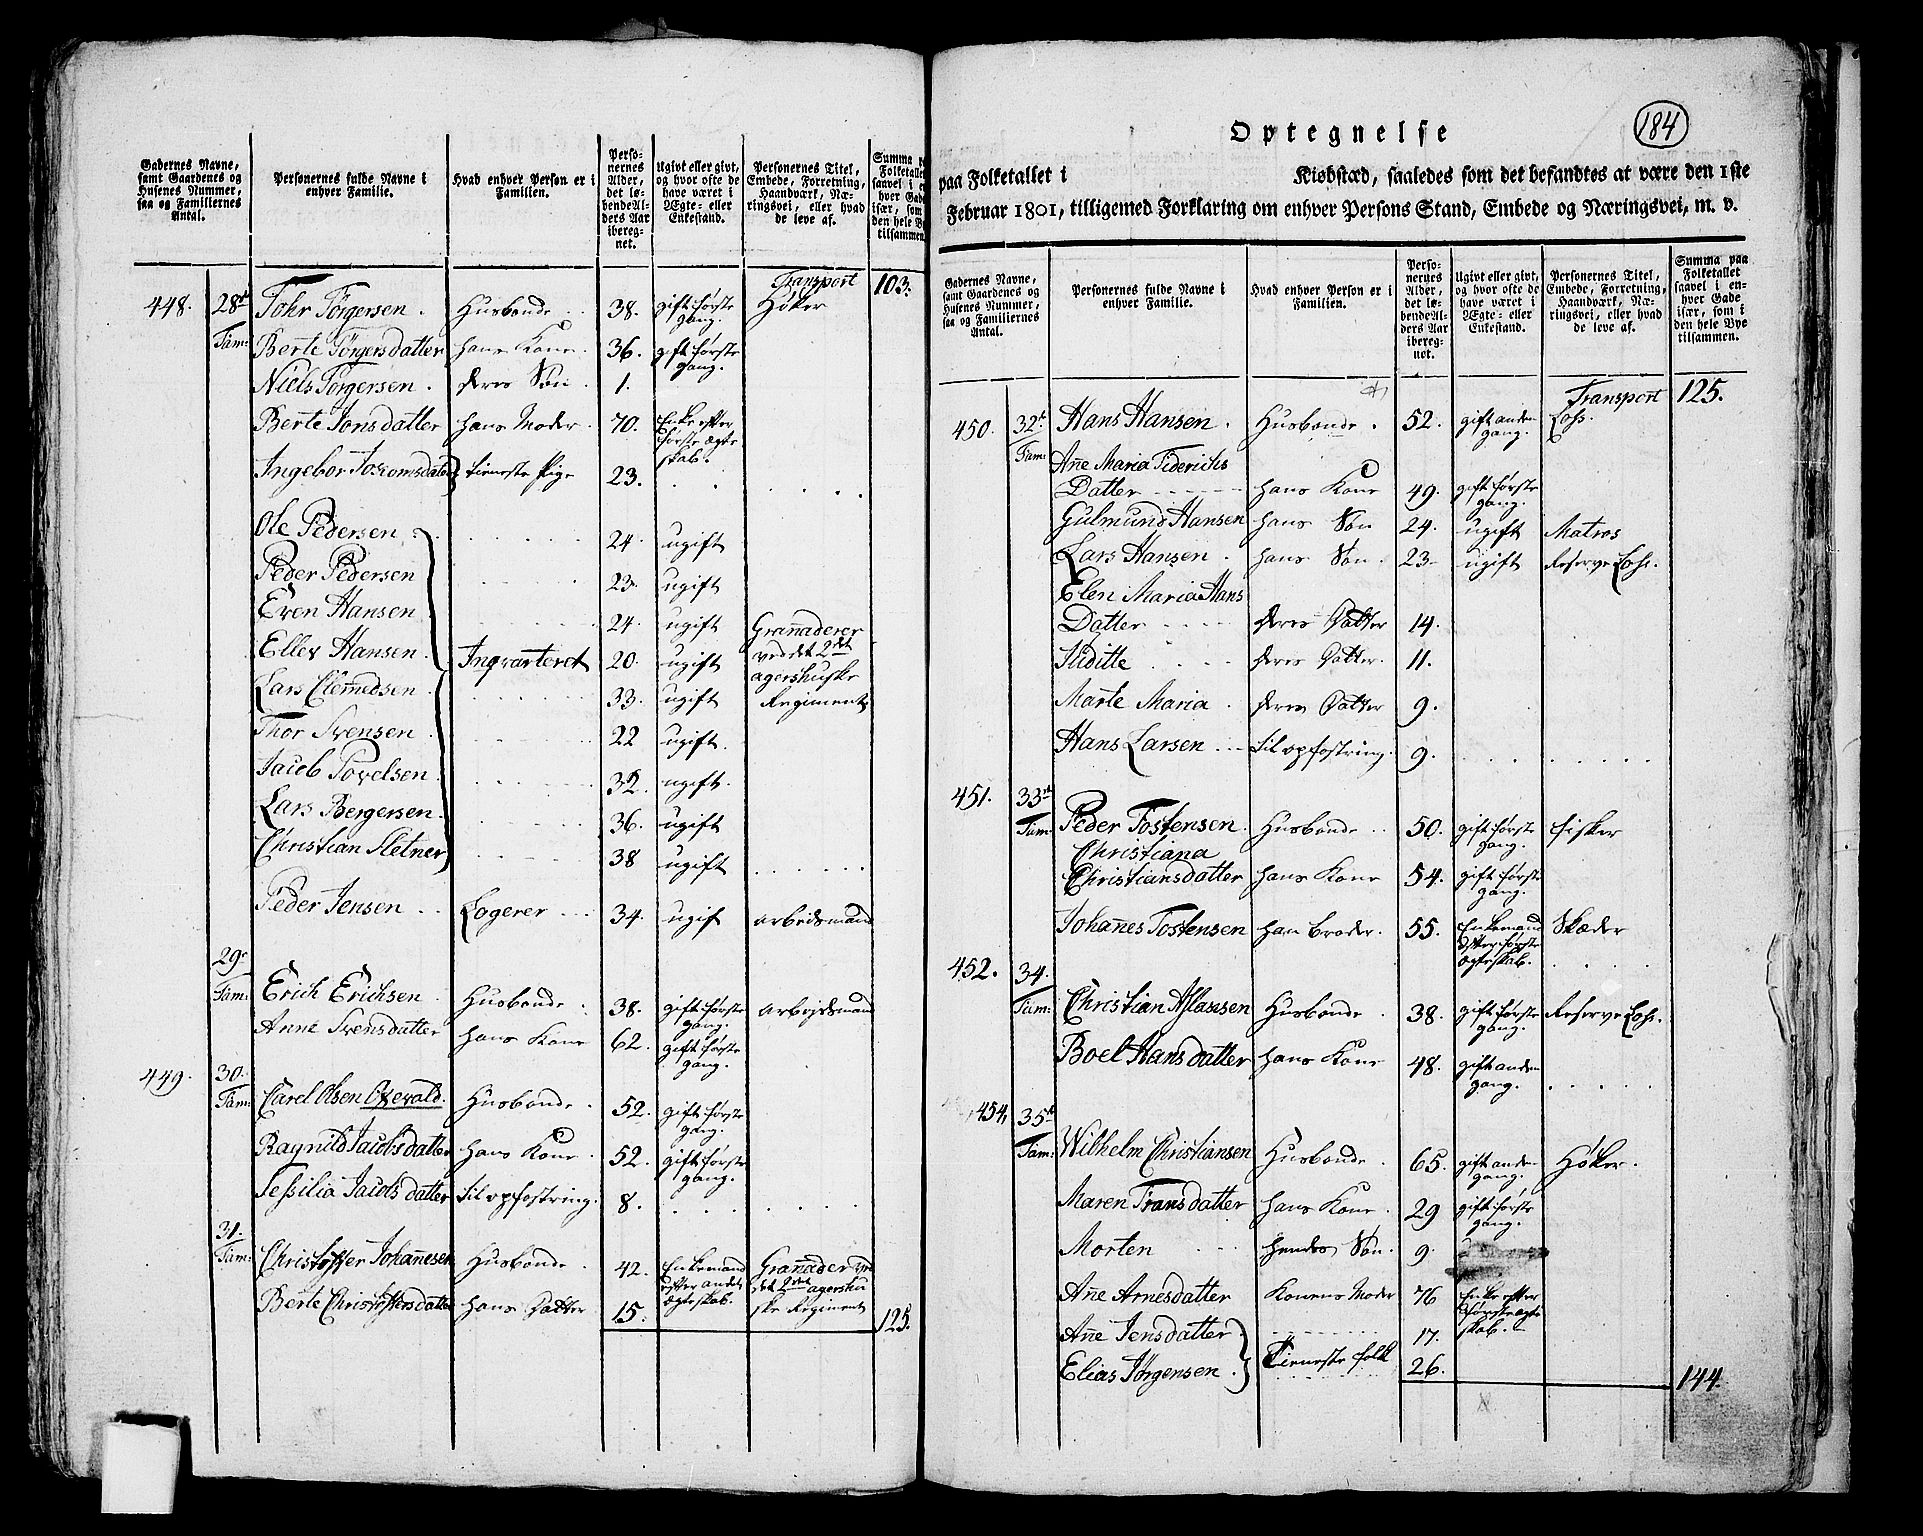 Gadernes Navne, samt Gaardenes og Husenes Nummer, saa og Familiernes Antal.
Personernes fulde Navne i enhver Familie.
Hvad enhver Person er i Familien.
Personernes Alder, det løbende Alders Aar iberegnet.
Ugivt eller givt, og hvor ofte de have været i Ægte- eller Enkestand.
Personernes Titel, Embede, Forretning, Haandværk, Næringsvei, eller hvad de leve af.
Transport 103.
448. 28de Fam: Tohr Törgersen. Husbonde 38. gift første gang. Høker
Berte Törgersdatter hans Kone. 36. gift første gang.
Niels Törgersen. deres Søn 1.
Berte Jonsdatter hans Moder. 70. Enke efter første ægteskab.
tieneste Pige 23.
Ole Pedersen 24. ugift
Peder Pedersen 23. ugift
Even Hansen 24. ugift Granaderer
Ellev Hansen Inqvarteret 20. ugift ved det 2det
Lars Clemedsen 33. ugift agershuske Regiment
Thor Svensen 22 ugift.
Jacob Povelsen 32. ugift.
Lars Bergersen 36. ugift
Christian Sletner 38 ugift
Peder Jensen Logerer 34. ugift arbeidsmand
29 Fam: Erich Erichsen Husbonde 38. gift første gang. arbejdsmand
Anne Svensdatter hans Kone 62. gift første gang.
449. 30. Fam: Carel Olsen Husbonde 52. gift første gang.
Ragnild Jacobsdatter hans Kone 52. gift første gang.
Sessilia Jacobsdatter til opfostring. 8.
31. Fam: Christoffer Johannesen Husbonde 42. Enkemand efter andet ægteskab. Granader ved det 2det agershuske Regiment
Berte Christoffersdatter hans Datter 15. 125.
184
Optegnelse
paa Folketallet i Kiøbstæd, saaledes som det befandtes at være den 1ste
Februar 1801, tilligemed Forklaring om enhver Persons Stand, Embede og Næringsvei, m. v.
Gadernes Navne, samt Gaardenes og Husenes Nummer, saa og Familiernes Antal.
Personernes fulde Navne i enhver Familie.
Hvad enhver Person er i Familien.
Personernes Alder, det løbende Alders Aar iberegnet.
Ugivt eller givt, og hvor ofte de have været i Ægte- eller Enkestand.
Personernes Titel, Embede, Forretning, Haandværk, Næringsvei, eller hvad de leve af.
Summa paa Folketallet saavel i enhver Gade især, som i den hele Bye tilsammen.
Transport 125.
450. 32te Fam: Hans Hansen. Husbonde. 52. gift anden gang. Lohs.
Ane Maria
Datter hans Kone 49. gift første gang.
Gulmund Hansen hans Søn 24. ugift Matros
Lars Hansen. hans Søn. 23. ugift Reserve Lohs.
Elen Maria Hans
Datter deres Datter 14.
Juditte deres Datter. 11.
Marte Maria. deres Datter 9.
Hans Larsen til opfostring. 9.
451. 33te Fam: Peder Tostensen. Husbonde 50. gift første gang. fisker
Christiana
Christiansdatter hans Kone 54. gift første gang.
Johannes Tostensen han broder. 55. Enkemand efter første ægteskab. Skæder
452. 34. Fam: Christian Aslassen Husbonde 38. gift første gang. Reserve Lohs.
Boel Hansdatter hans Kone 48. gift anden gang.
454, 35te Fam: Wilhelm Christiansen Husbonde 65. gift anden gang. Høker.
Maren Transdatter hans Kone. 29 gift første gang.
Morten hendes Søn. 9.
Ane Arnesdatter Konens Moder 76 Enke efter første ægteskab.
Ane Jensdatter 17.
Elias Jørgensen. Tieneste folk 26.
144.